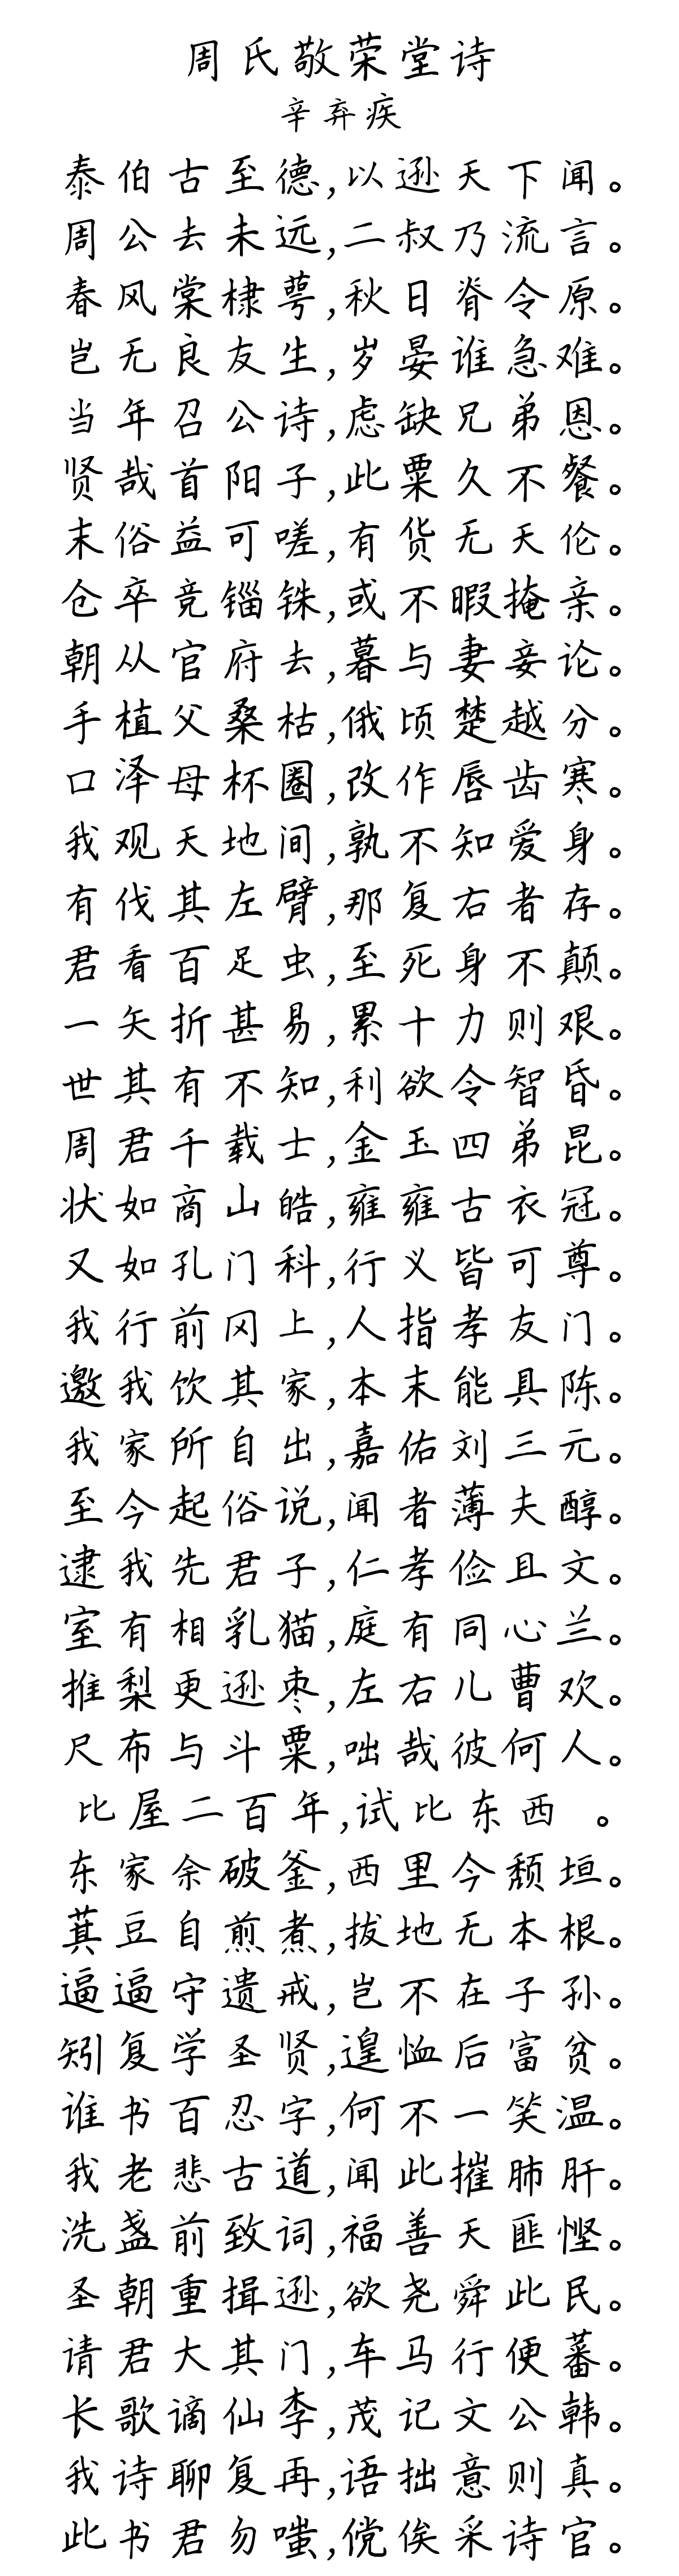 周氏敬荣堂诗
辛弃疾
泰伯古至德,以逊天下闻。
周公去未远,二叔乃流言。
春风棠棣萼,秋日脊令原。
岂无良友生,岁晏谁急难。
当年召公诗,虑缺兄弟恩。
贤哉首阳子,此粟久不餐。
末俗益可嗟,有货无天伦。
仓卒竞锱铢,或不暇掩亲。
朝从官府去,暮与妻妾论。
手植父桑枯,俄顷楚越分。
口泽母杯圈,改作唇齿寒。
我观天地间,孰不知爱身。
有伐其左臂,那复右者存。
君看百足虫,至死身不颠。
一矢折甚易,累十力则艰。
世其有不知,利欲令智昏。
周君千载士,金玉四弟昆。
状如商山皓,雍雍古衣冠。
又如孔门科,行义皆可尊。
我行前冈上,人指孝友门。
邀我饮其家,本末能具陈。
我家所自出,嘉佑刘三元。
至今起俗说,闻者薄夫醇。
逮我先君子,仁孝俭且文。
室有相乳猫,庭有同心兰。
推梨更逊枣,左右儿曹欢。
尺布与斗粟,咄哉彼何人。
比屋二百年,试比东西 。
东家余破釜,西里今颓垣。
萁豆自煎煮,拔地无本根。
逼逼守遗戒,岂不在子孙。
矧复学圣贤,遑恤后富贫。
谁书百忍字,何不一笑温。
我老悲古道,闻此摧肺肝。
洗盏前致词,福善天匪悭。
圣朝重揖逊,欲尧舜此民。
请君大其门,车马行便蕃。
长歌谪仙李,茂记文公韩。
我诗聊复再,语拙意则真。
此书君勿嗤,傥俟采诗官。